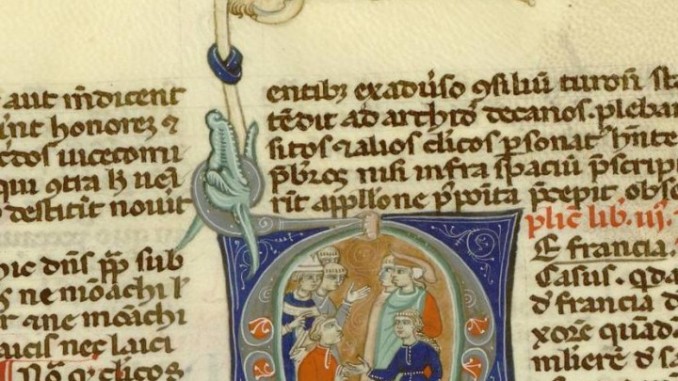 aut indicent
int honores ⁊
ctos uicecomi
qui qtra h uei
destitit nouit
hic dns pp sub
s ne moachi l
r ane moachi
aucis nec laici
No qr clicos
entibz exaduiso qsiliu turon sta
tedit ad archito decanos. pleban
sitos ⁊ alios clicos psonat hnte
pbros nisi infra spaciu pscrip
rit appllone pposita pcepit obse
plic lib. iij.
E francia
Casus. qda
d francia d
xore quada
miliere d sa